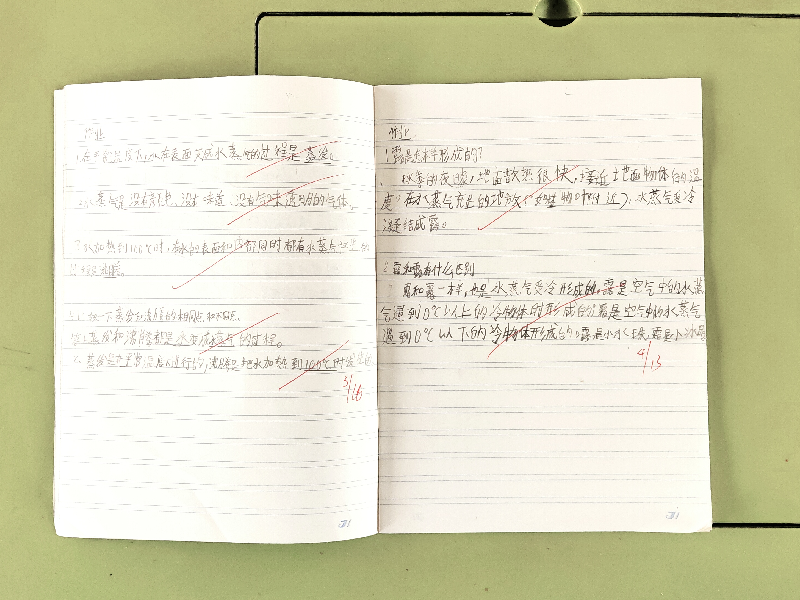 作业
1.在平常状况下,水在表面变成水蒸气的过程是蒸发。
2.水蒸气是没有颜色、没有味道、没有气味透明的气体。
水加热到100℃时,在水的表面和内部同时都有水蒸气
比一下蒸发和沸腾的相同点和不同点。
蒸发和沸腾都是水变成水蒸气的过程。
把水加热到100℃时
3/16
作业
1.露是怎样形成的?
秋季的夜晚,地面散热很快,接近地面物体的温
度。在水蒸气充足的地放(如植物附近),水蒸气受冷
凝结成露。
2.霜和露有什么区别
霜和露一样,也是水蒸气受冷形成的。露是空气中的水蒸
气遇到0℃以上的冷物体时形成的。霜是空气中的水蒸气
遇到0℃以下的冷物体形成的。露是小水珠,霜是小冰晶
4/13